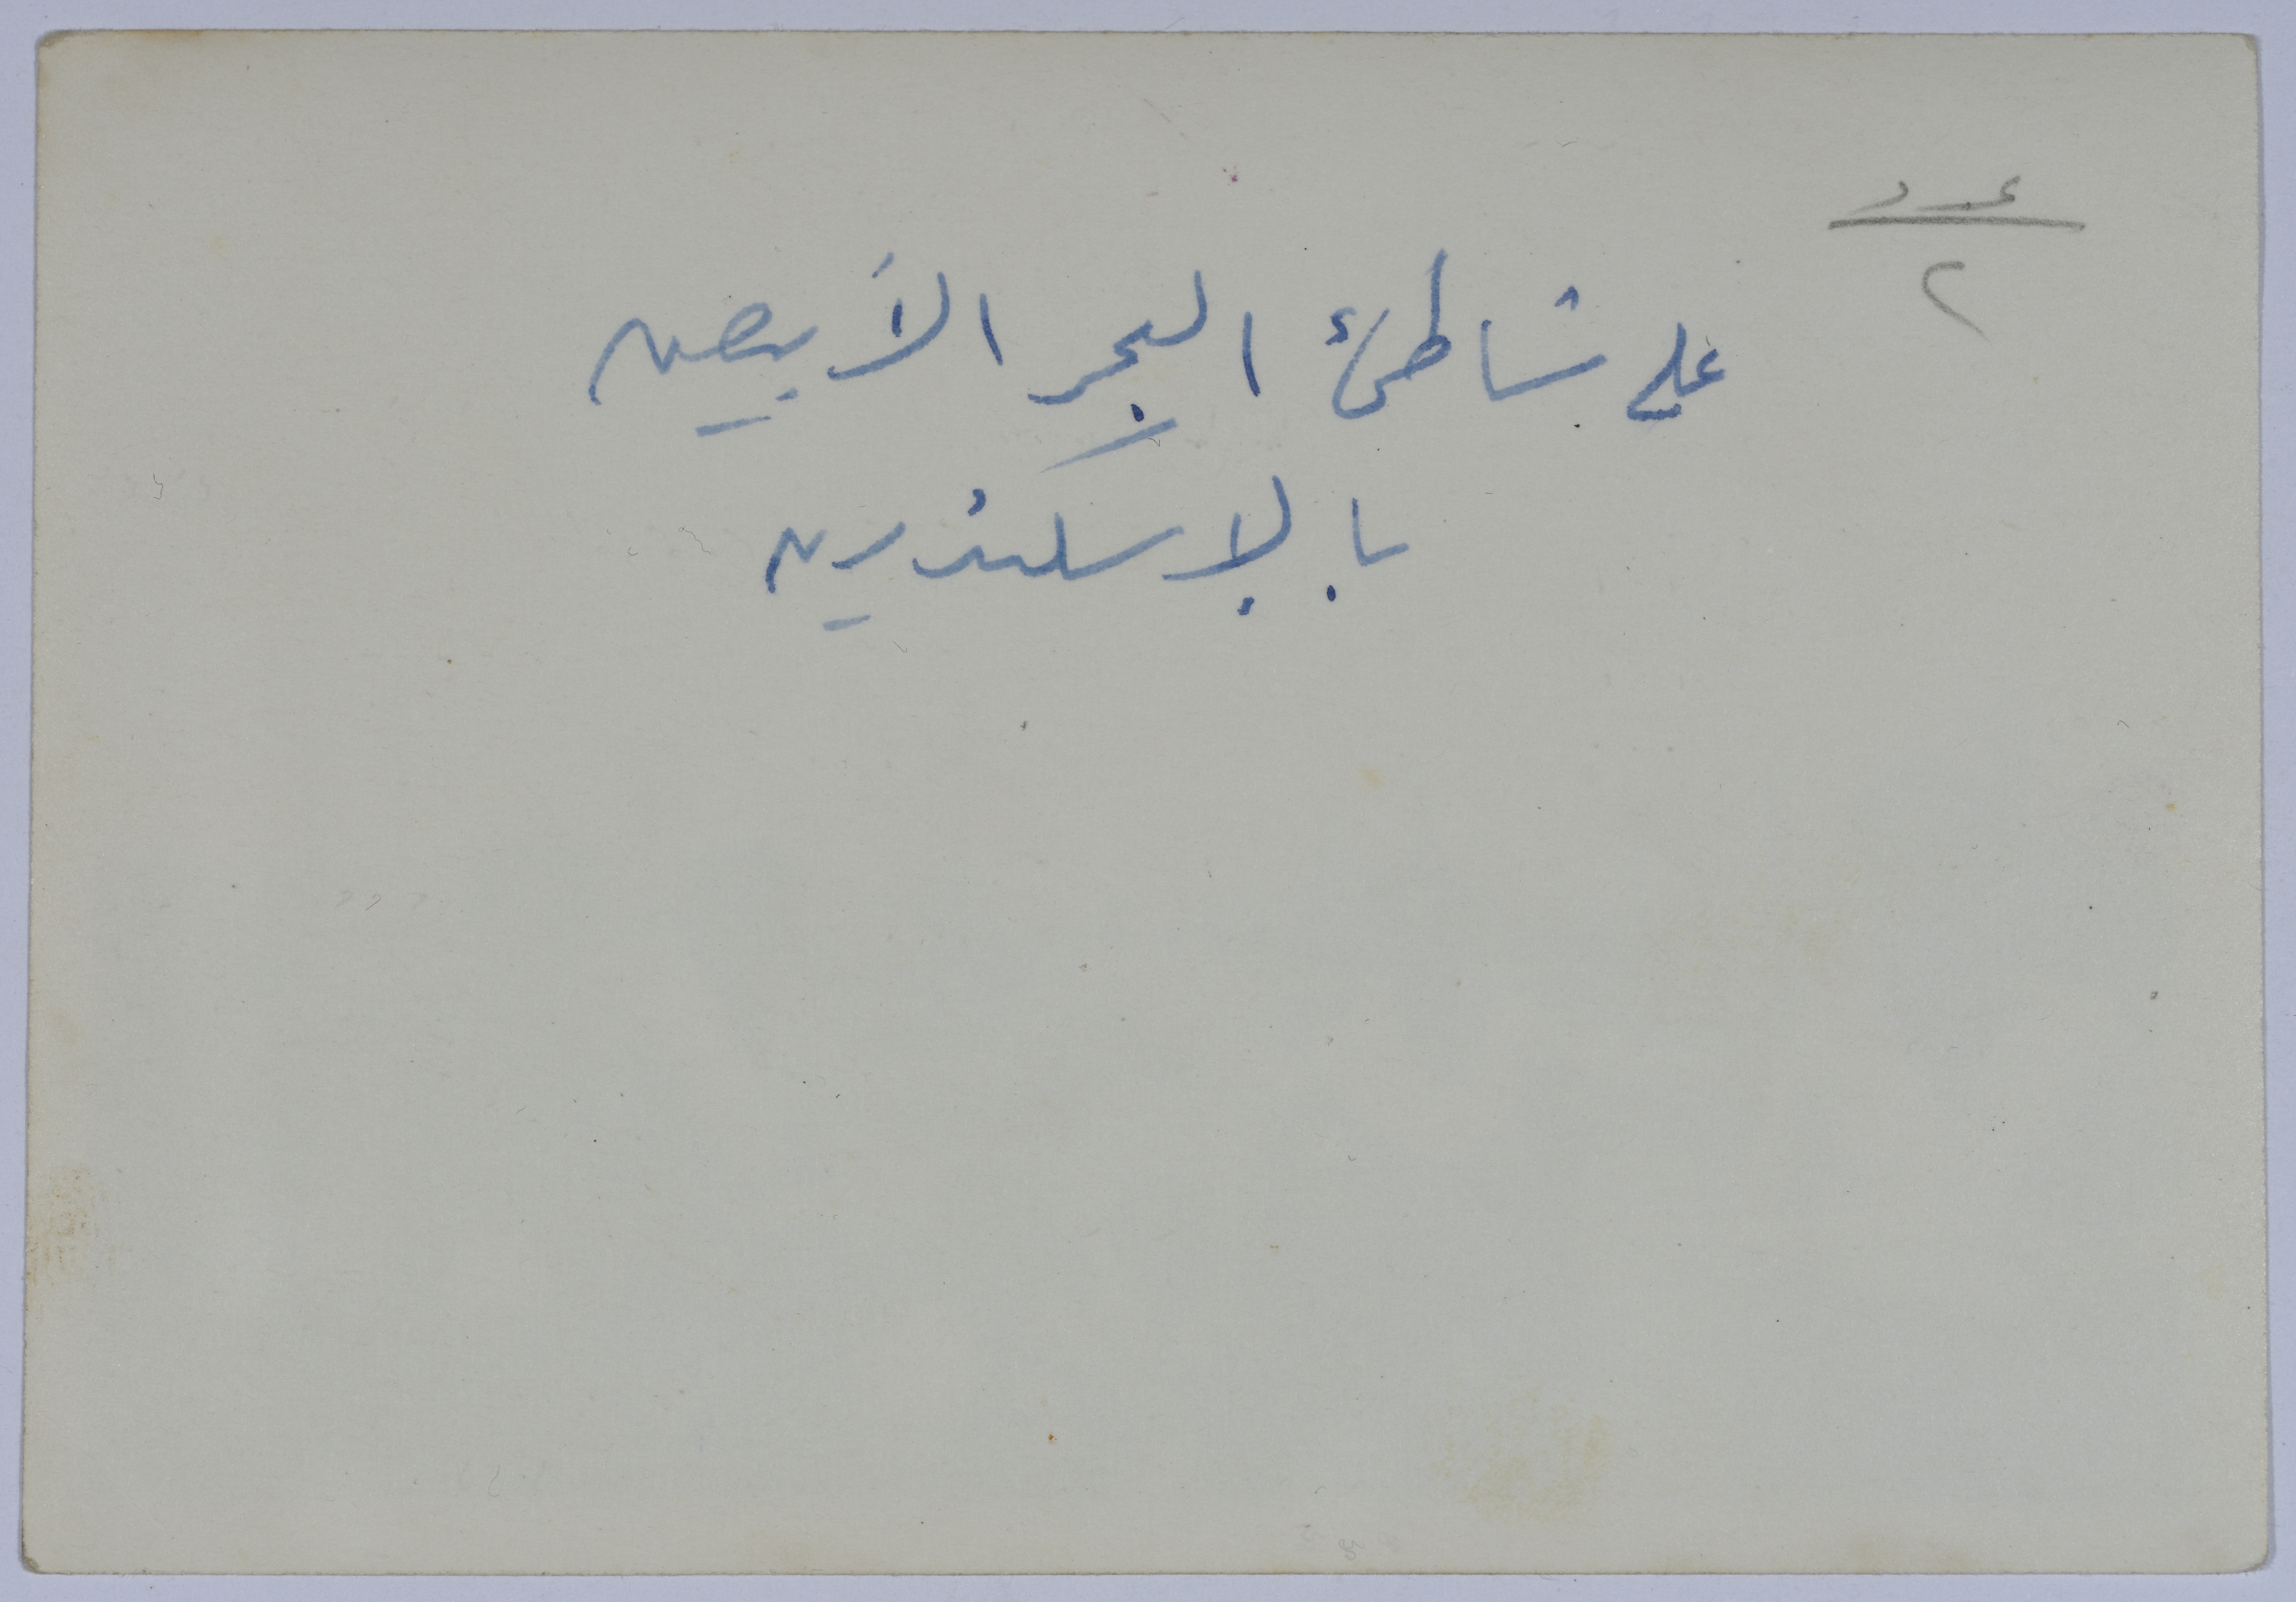 عدد
٢
على شاطئ البحر الأبيض
بالإسكندرية